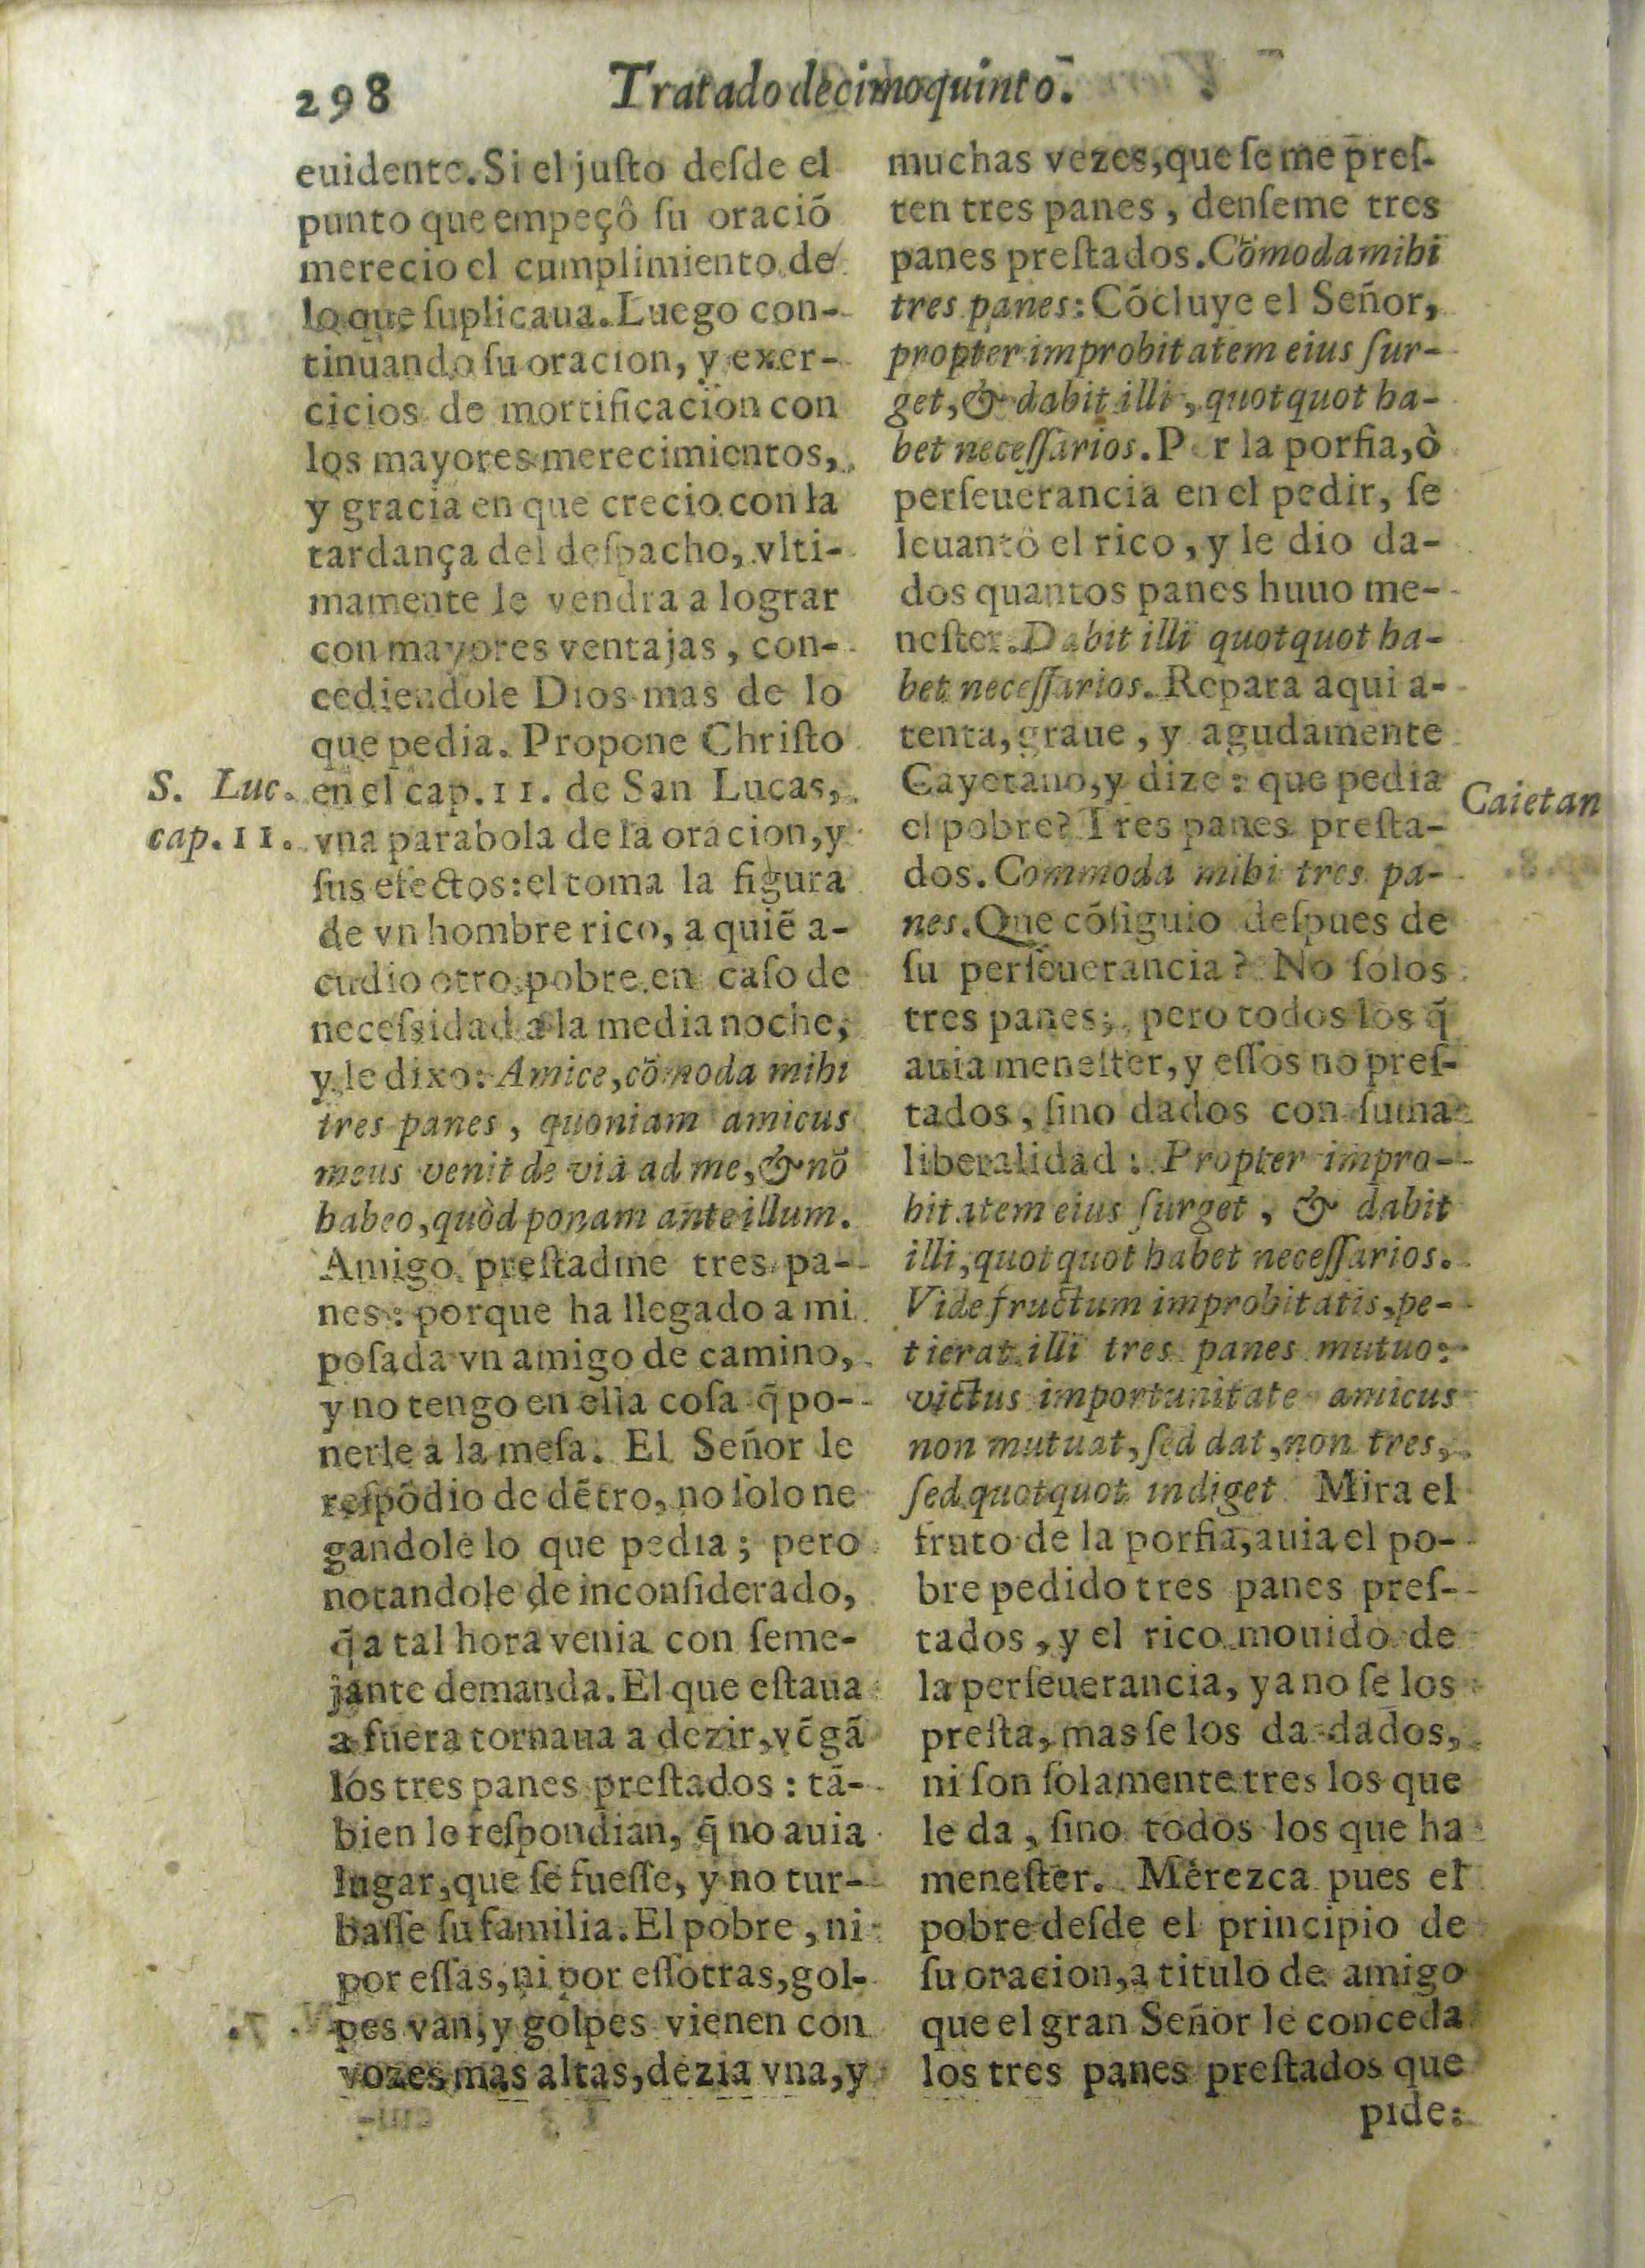 298 Tratado decimoquinto.
euidente. Si el juſto deſde el
punto que empeçô ſu oraciõ
merecio el cumplimiento de
lo que ſuplicaua. Luego con-
tinuando ſu oracion, y exer-
cicios de mortificacion con
los mayores merecimientos,
y gracia en que crecio con la
tardança del deſpacho, vlti-
mamente le vendra a lograr
con mayores ventajas, con-
cediendole Dios mas de lo
que pedia. Propone Chriſto
en el cap. 11. de San Lucas,
vna parabola de la oracion, y
ſus efectos: el toma la figura
de vn hombre rico, a quiẽ a-
cudio otro pobre en caſo de
neceſsidad a la media noche,
y le dixo: Amice, cõmoda mihi
tres panes, quoniam amicus
meus venit de via ad me, & nõ
habeo, quòd ponam ante illum.
Amigo preſtadme tres pa-
nes: porque ha llegado a mi
poſada vn amigo de camino,
y no tengo en ella coſa q̃ po-
nerle a la meſa. El Señor le
reſpõdio de dẽtro, no ſolo ne
gandole lo que pedia; pero
notandole de inconſiderado,
q̃ a tal hora venia con ſeme-
jante demanda. El que eſtaua
a fuera tornaua a dezir, vẽgã
los tres panes preſtados: tã-
bien le reſpondian, q̃ no auia
lugar, que ſe fueſſe, y no tur-
baſſe ſu familia. El pobre, ni
por eſſas, ni por eſſotras, gol-
pes van, y golpes vienen con
vozes mas altas, dezia vna, y
S. Luc.
cap. 11.
muchas vezes, que ſe me preſ-
ten tres panes, denſeme tres
panes preſtados. Cõmoda mihi
tres panes: Cõcluye el Señor,
propter improbitatem eius ſur-
get, & dabit illi, quotquot ha-
bet neceſſarios. P r la porfia, ò
perſeuerancia en el pedir, ſe
leuantò el rico, y le dio da-
dos quantos panes huuo me-
neſter. Dabit illi quotquot ha-
bet neceſſarios. Repara aqui a-
tenta, graue, y agudamente
Cayetano, y dize: que pedia
el pobre? Tres panes preſta-
dos. Commoda mihi tres pa-
nes. Que cõſiguio deſpues de
ſu perſeuerancia? No ſolos
tres panes; pero todos los q̃
auia meneſter, y eſſos no preſ-
tados, ſino dados con ſuma
liberalidad: Propter impro-
bitatem eius ſurget, & dabit
illi, quotquot habet neceſſarios.
Vide fructum improbitatis, pe-
tierat illi tres panes mutuo:
victus importunitate amicus
non mutuat, ſed dat, non tres,
ſed quotquot indiget Mira el
fruto de la porfia, auia el po-
bre pedido tres panes preſ-
tados, y el rico mouido de
la perſeuerancia, ya no ſe los
preſta, mas ſe los da dados,
ni ſon ſolamente tres los que
le da, ſino todos los que ha
meneſter. Merezca pues el
pobre deſde el principio de
ſu oracion, a titulo de amigo
que el gran Señor le conceda
los tres panes preſtados que
pide:
Caietan